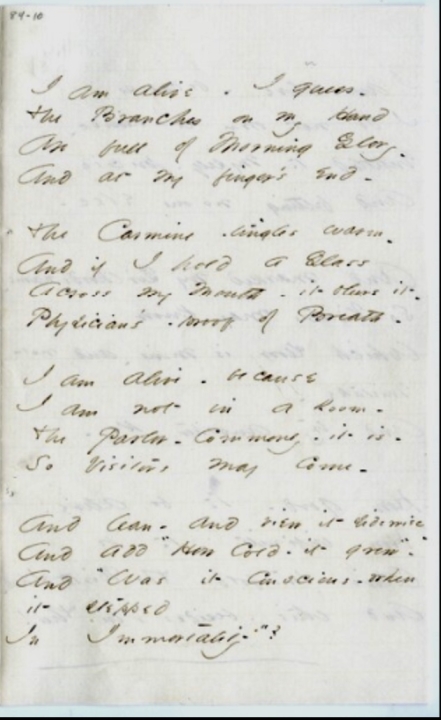 84-10
I am alive - I guess -
The Branches on my Hand
Are full of Morning Glory -
And at my finger's end -
The Carmine - tingles warm -
And if I hold a Glass
Across my Mouth - it blurs it -
Physician's - proof of Breath -
I am alive - because
I am not in a Room -
The Parlor - Commonly - it is -
So Visitors may come -
And lean - and view it sidewise
And add "How cold - it grew" -
And "Was it conscious - when
it stepped
In Immortality"?